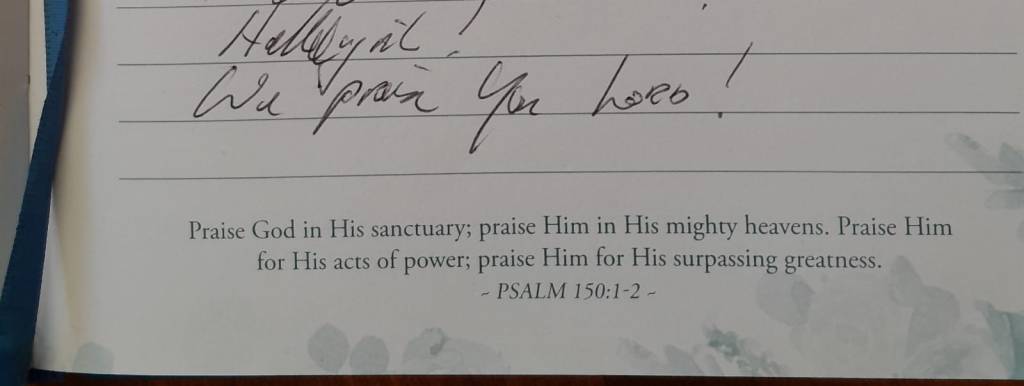 Hallelujah!
We praise You LORD!
Praise God in His sanctuary; praise Him in His mighty heavens. Praise Him
for His acts of power; praise Him for His surpassing greatness.
~ PSALM 150:1-2 ~